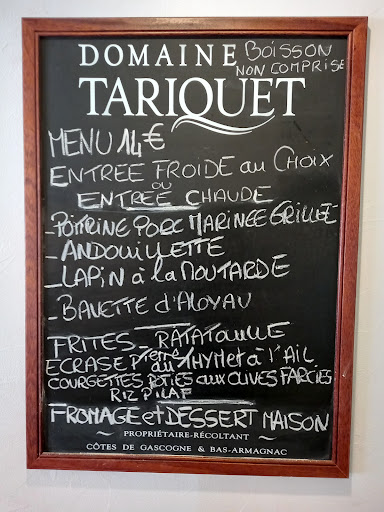 DOMAINE BOISSON
NON COMPRISE
TARIQUET
MENU 14€
ENTREE FROIDE au CHOIX
OU
ENTREE CHAUDE
-POITRINE PORC MARINEE GRILLÉE
-ANDOUILLETTE
-LAPIN à la MOUTARDE
-BAVETTE d'ALOYAU
FRITES_ RATATOUILLE
ECRASE PTERRE au THYM et à l'AIL
COURGETTES ROTIES aux OLIVES FARCIES
RIZ PILAF
FROMAGE et DESSERT MAISON
PROPRIÉTAIRE-RÉCOLTANT
CÔTES DE GASCOGNE & BAS-ARMAGNAC